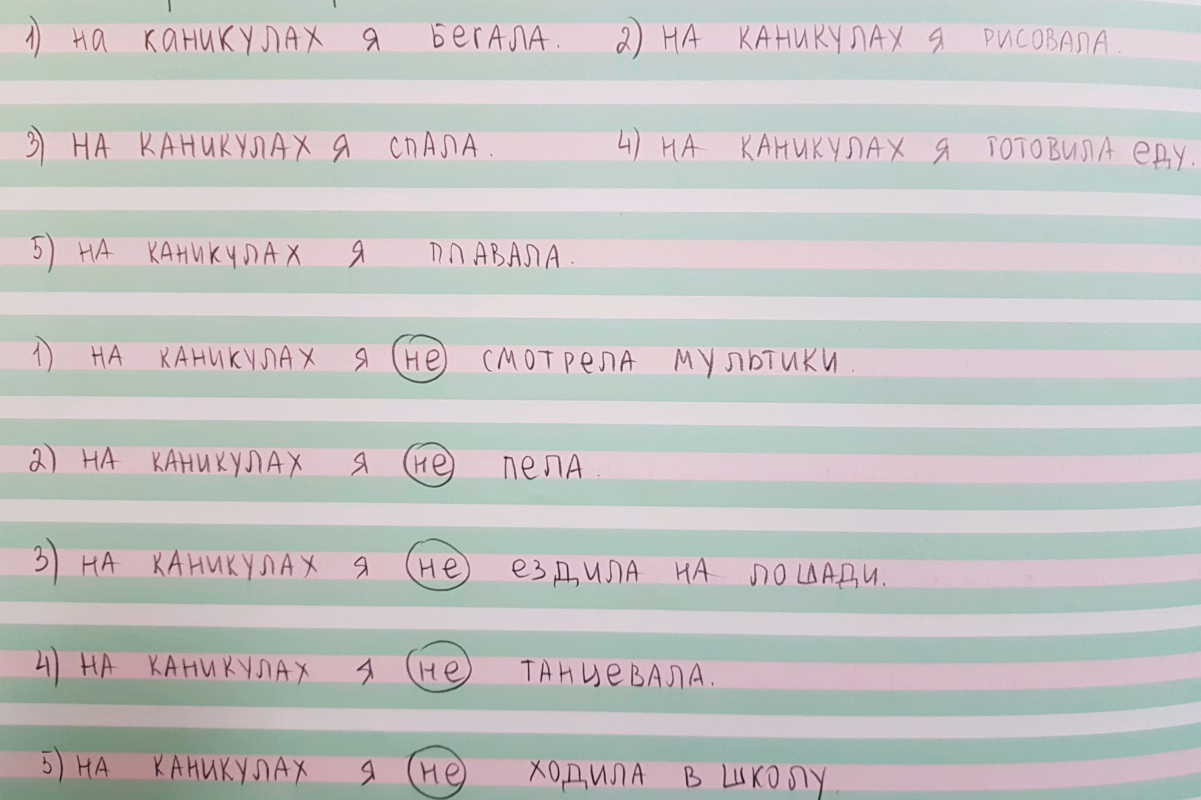 1) на каникулах я бегала. 2) НА КАНИКУЛАХ Я РИСОВАЛА.
3) НА КАНИКУЛАХ Я СПАЛА. 4) НА КАНИКУЛАХ Я ГОТОВИЛА ЕДУ.
5) НА КАНИКУЛАХ Я ПЛАВАЛА.
1) НА КАНИКУЛАХ Я НЕ СМОТРЕЛА МУЛЬТИКИ.
2) НА КАНИКУЛАХ Я НЕ ПЕЛА.
3) НА КАНИКУЛАХ Я НЕ ЕЗДИЛА НА ЛОШАДИ.
4) НА КАНИКУЛАХ Я НЕ ТАНЦЕВАЛА.
5) НА КАНИКУЛАХ Я НЕ ХОДИЛА В ШКОЛУ